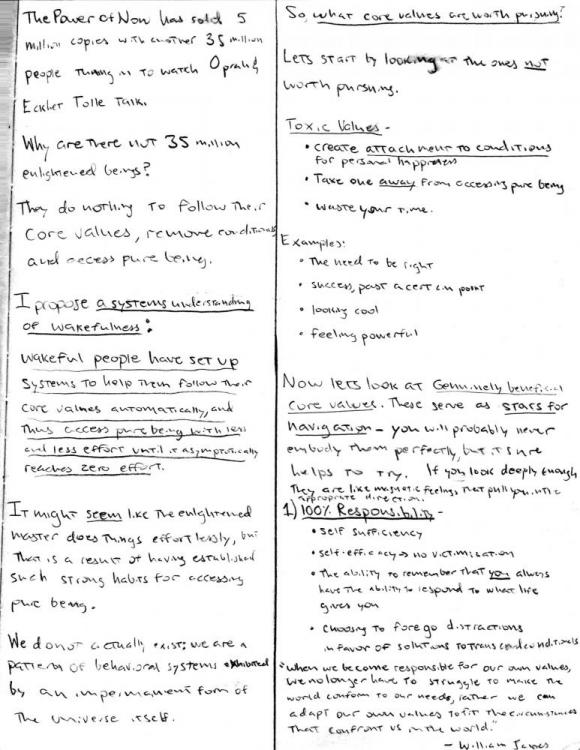 The Power of Now has sold 5
million copies with another 35 million
people tuning in to watch Oprah &
Eckhert Tolle Talk.
Why are there not 35 million
enlightened beings?
They do nothing to follow their
core values, remove conditions
and access pure being.
I propose a systems understanding
of wakefulness:
Wakeful people have set up
systems to help them follow their
core values automatically, and
thus access pure being with less
and less effort until it asymptotically
reaches zero effort.
It might seem like the enlightened
master does things effortlessly, but
that is a result of having established
such strong habits for accessing
pure being.
We do not actually exist; we are a
pattern of behavioral systems exhibited
by an impermanent form of
the universe itself.
So, what core values are worth pursuing?
Lets start by looking at the ones not
worth pursuing.
Toxic Values -
• create attachment to conditions
for personal happiness
• Take one away from accessing pure being
• waste your time.
Examples:
• The need to be right
• success, past a certain point
• looking cool
• feeling powerful
Now lets look at Genuinely beneficial
core values. These serve as stars for
navigation - you will probably never
embody them perfectly, but it sure
helps to try. If you look deeply enough
they are like magnetic feelings that pull you into
appropriate direction.
1) 100% Responsibility -
• self sufficiency
• self-efficacy → no victimization
• The ability to remember that you always
have the ability to respond to what life
gives you
• choosing to forego distractions
in favor of solutions to transcend conditionals
"When we become responsible for our own values,
we no longer have to struggle to make the
world conform to our needs, rather we can
adapt our own values to fit the circumstances
that confront us in the world."
- William James